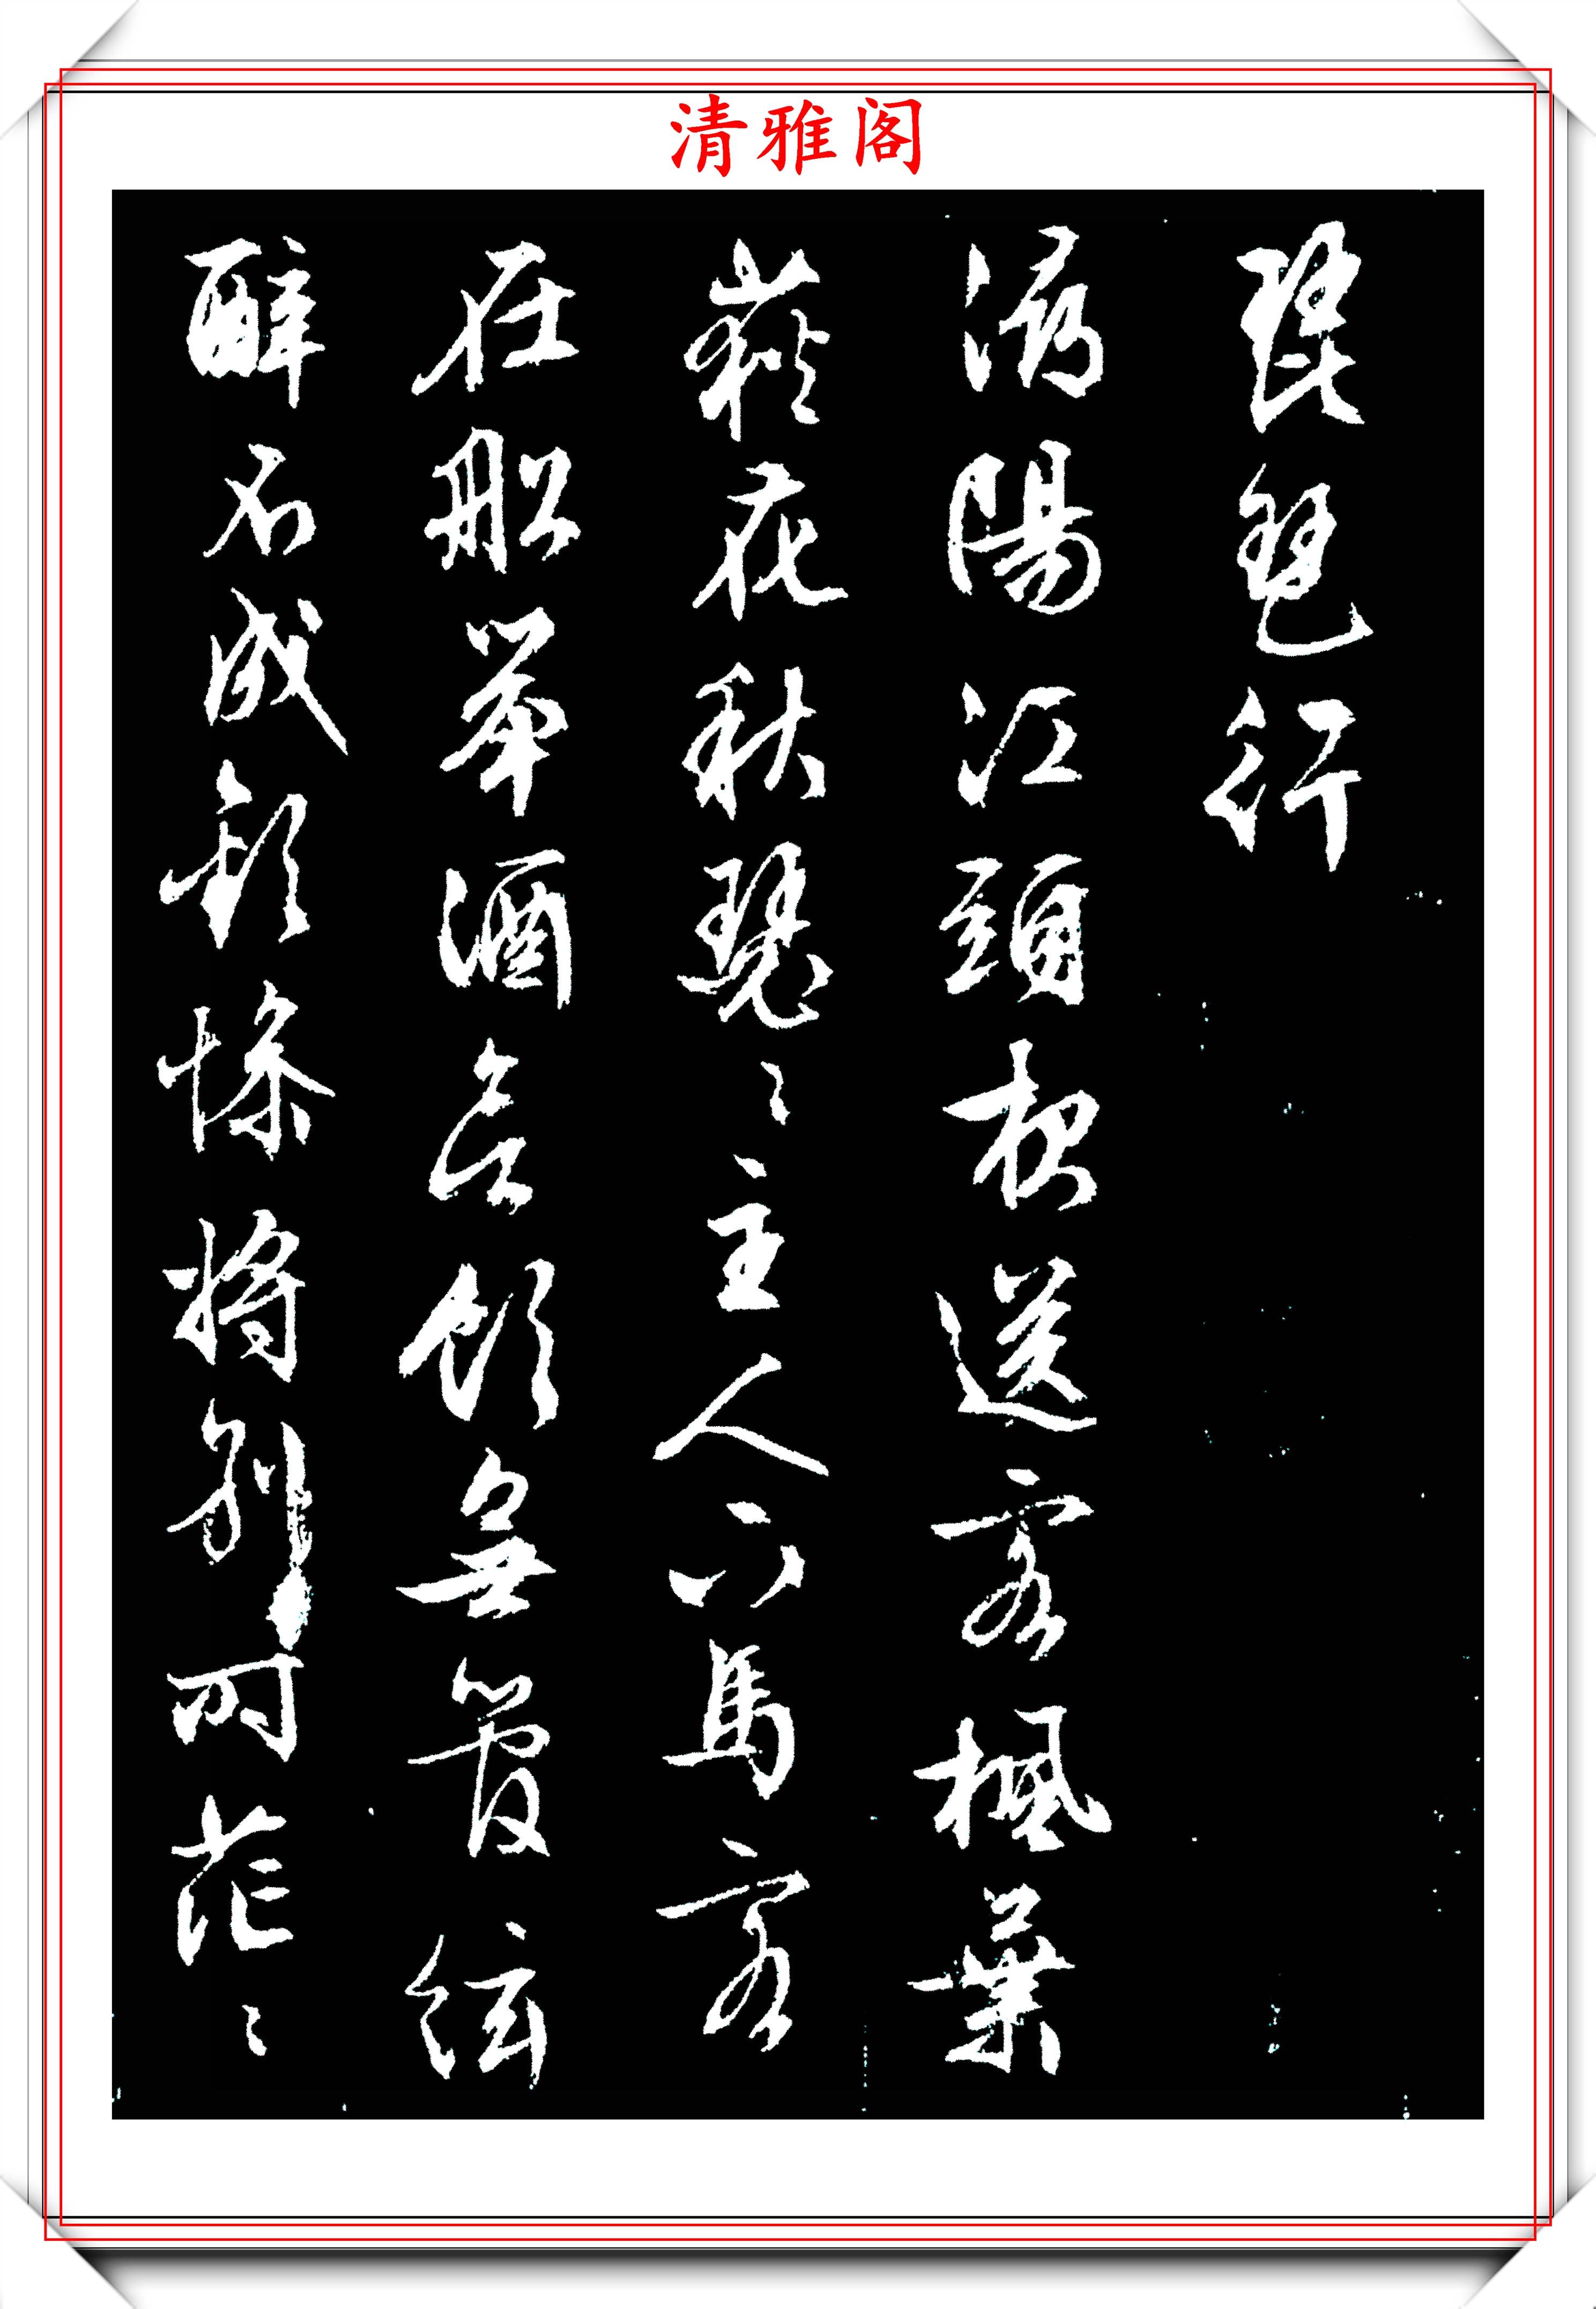 清雅阁
琵琶行
潯陽江頭夜送客楓葉
荻花秋瑟〻主人下馬客
在船舉酒欲飲無管絃
醉不成歡慘將別時茫〻